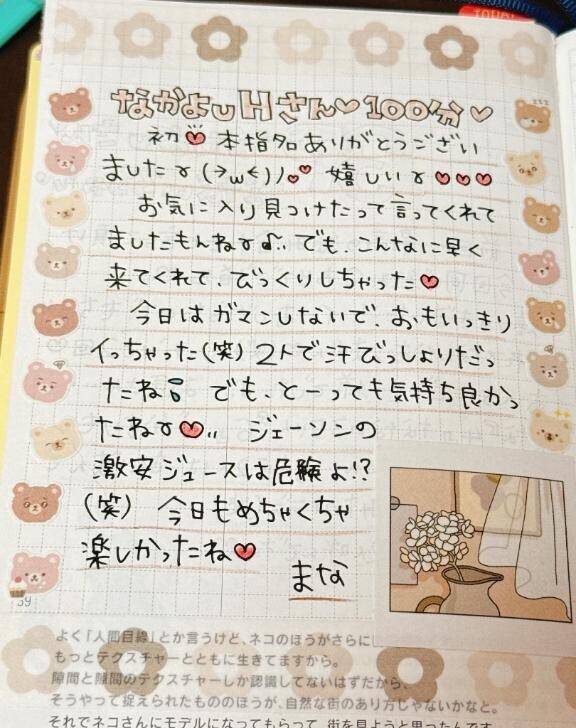 なかよしHさん♡100分♡
初♡本指名ありがとうござい
ました♉(>ω<)ﾉ♡ 嬉しい♉♡♡♡
お気に入り見つけたって言ってくれて
ましたもんね♉♪.. でも、こんなに早く
来てくれて、びっくりしちゃった♡
今日はガマンしないで、おもいっきり
イっちゃった(笑) 2人で汗びっしょりだっ
たね でも、とーっても気持ち良かっ
たね♉♡.. ジェーソンの
激安ジュースは危険よ!?
(笑) 今日もめちゃくちゃ
楽しかったね♡
まな
59
よく「人間目線」とか言うけど、ネコのほうがさらに
もっとテクスチャーとともに生きてますから。
隙間と隙間のテクスチャーしか認識してないはずだから、
そうやって捉えられたもののほうが、自然な街のあり方じゃないかなと。
それでネコさんにモデルになってもらって、街を見ようと思ったんです